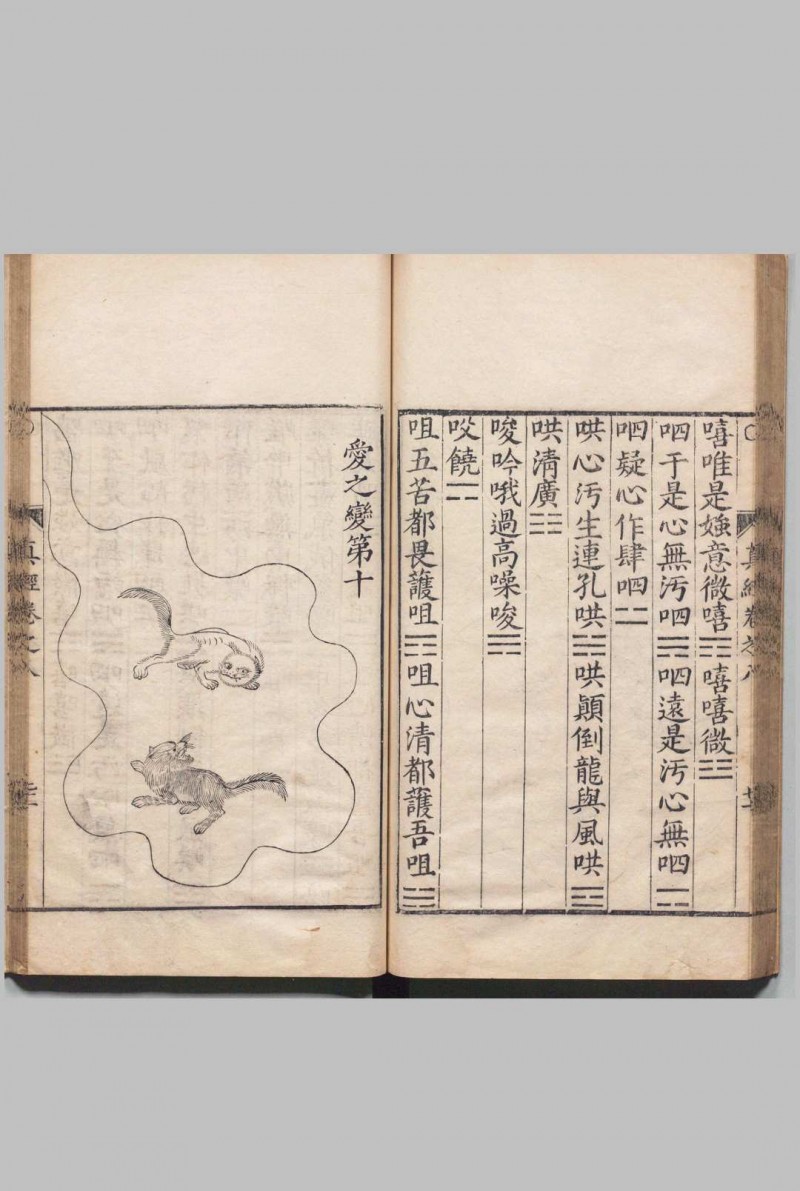 嘻唯是媸意微嘻☵嘻嘻微☰
呬于是心無汚呬☵呬遠是汚心無呬⚍
呬疑心作肆呬⚌
哄心汚生連孔哄☵哄顛倒龍與風哄☲
哄清廣☷
唆吟哦過高噪唆☵
咬饒⚍
咀五苦都畏護咀☵咀心清都護吾咀☱
真經卷之八
愛之變第十
真經卷之八